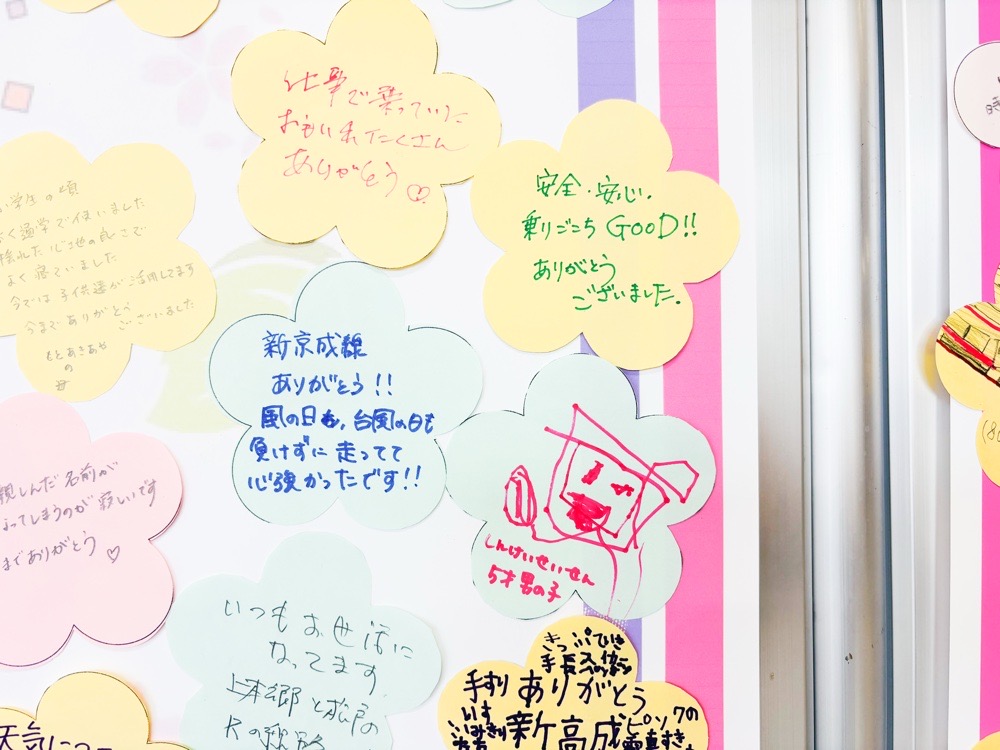 仕事で乗っていた
おもいれたくさん
ありがとう
安全・安心.
乗りごこち GOOD!!
ありがとう
ございました.
学生の頃
通学で使いました
心地の良さで
よく寝ていました
今では子供達が活用してます
今までありがとう
ございました
新京成線
ありがとう!!
風の日も,台風の日も
負けずに走ってて
心強かったです!!
しんけいせいせん
5才男の子
親しんだ名前が
なってしまうのが寂しいです
までありがとう
いつもお世話に
なってます
上本郷と松戸の
天気に
手すり ありがとう
いす
新高成